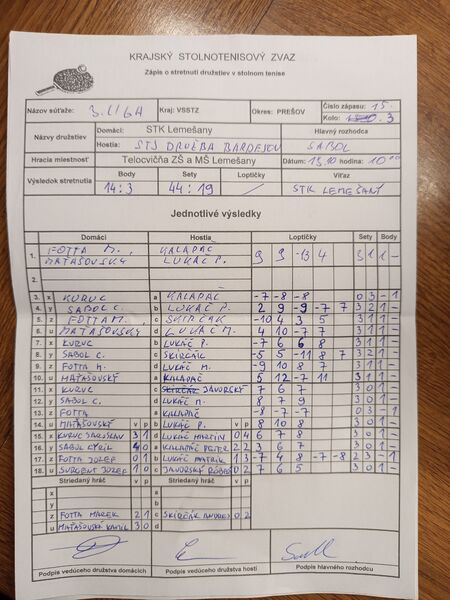 KRAJSKÝ STOLNOTENISOVÝ ZVÄZ
Zápis o stretnutí družstiev v stolnom tenise
Názov súťaže: 3. LIGA Kraj: VSSTZ Okres: PREŠOV Číslo zápasu: 15.
Kolo: 3
Názvy družstiev Domáci: STK Lemešany Hlavný rozhodca
Hostia: STJ DRUŽBA BARDEJOV SABOL
Hracia miestnosť Telocvičňa ZŠ a MŠ Lemešany Dátum: 13.10 hodina: 10 00
Výsledok stretnutia Body Sety Loptičky Víťaz
14:3 44:19 / STK LEMEŠANY
Jednotlivé výsledky
Domáci Hostia Loptičky Sety Body
1. FOTTA M. KALAPAČ 9 9 -13 4 3 1 1 -
MAŤAŠOVSKÝ LUKÁČ P.
2.
3. x KURUC a KALAPAČ -7 -8 -8 0 3 - 1
4. y SABOL C. b LUKÁČ P. 2 9 -9 -7 7 3 2 1 -
5. z FOTTA M. c SKIRČÁK -10 4 3 5 3 1 1 -
6. u MAŤAŠOVSKÝ d LUKÁČ M. 4 10 -7 7 3 1 1 -
7. x KURUC b LUKÁČ P. -7 6 6 8 3 1 1 -
8. y SABOL C. c SKIRČÁK -5 5 -11 8 7 3 2 1 -
9. z FOTTA M. d LUKÁČ M. -9 10 8 7 3 1 1 -
10. u MAŤAŠOVSKÝ a KALAPAČ 5 12 -7 11 3 1 1 -
11. x KURUC c SKIRČÁK JAVORSKÝ 7 6 7 3 0 1 -
12. y SABOL C. d LUKÁČ M. 8 7 9 3 0 1 -
13. z FOTTA a KALAPAČ -8 -7 -7 0 3 - 1
14. u MAŤAŠOVSKÝ v p b LUKÁČ P. v p 8 10 8 3 0 1 -
15. x KURUC JAROSLAV 3 1 d LUKÁČ MARTIN 0 4 6 7 8 3 0 1 -
16. y SABOL CYRIL 4 0 a KALAPAČ PETER 2 2 3 6 7 3 0 1 -
17. z FOTTA JOZEF 0 1 b LUKÁČ PATRIK 1 3 -7 4 8 -7 -8 2 3 - 1
18. u SURGENT JOZEF 1 0 c JAVORSKÝ RÓBERT 0 2 7 6 5 3 0 1 -
Striedaný hráč v p Striedaný hráč v p
x a
y b
z FOTTA MAREK 2 1 c SKIRČÁK ANDREJ 0 2
u MAŤAŠOVSKÝ KAMIL 3 0 d
Podpis vedúceho družstva domácich Podpis vedúceho družstva hostí Podpis hlavného rozhodcu